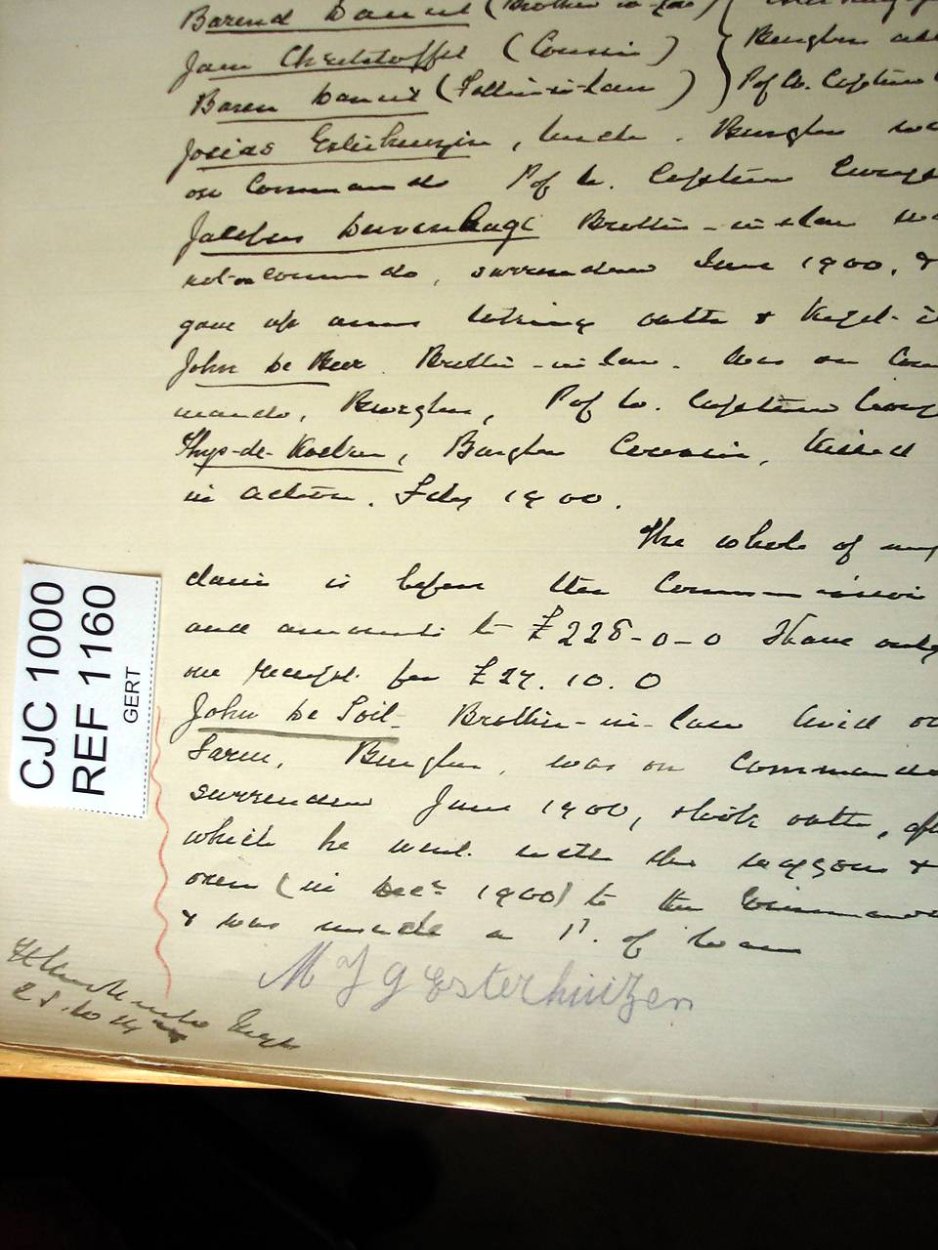 Barend (Brother-in-law)
Jan Christoffel (Cousin) Burgher
Baren (Father-in-Law) P of W. Captured
Josias Esterhuizen, Uncle. Burgher was
on Commando P of W. Captured
Jacobus Duvenhage Brother-in-law was
not on commando, surrendered June 1900, &
gave up arms taking oath &
John de Beer. Brother-in-law. Was on Com
mando, Burgher, P of W. Captured
Thys-de-, Burgher Cousin, killed
in action. July 1900.
The whole of my
claim is before the Commission
and amounts to £228-0-0 I have only
one receipt for £27.10.0
John de Brother-in-law lived on
Farm, Burgher, was on Commando
surrendered June 1900, & took oath, after
which he went with the waggons &
oxen (in Decr 1900) to the Commando
& was made a P. of War
M J G Esterhuizen
CJC 1000
REF 1160
GERT